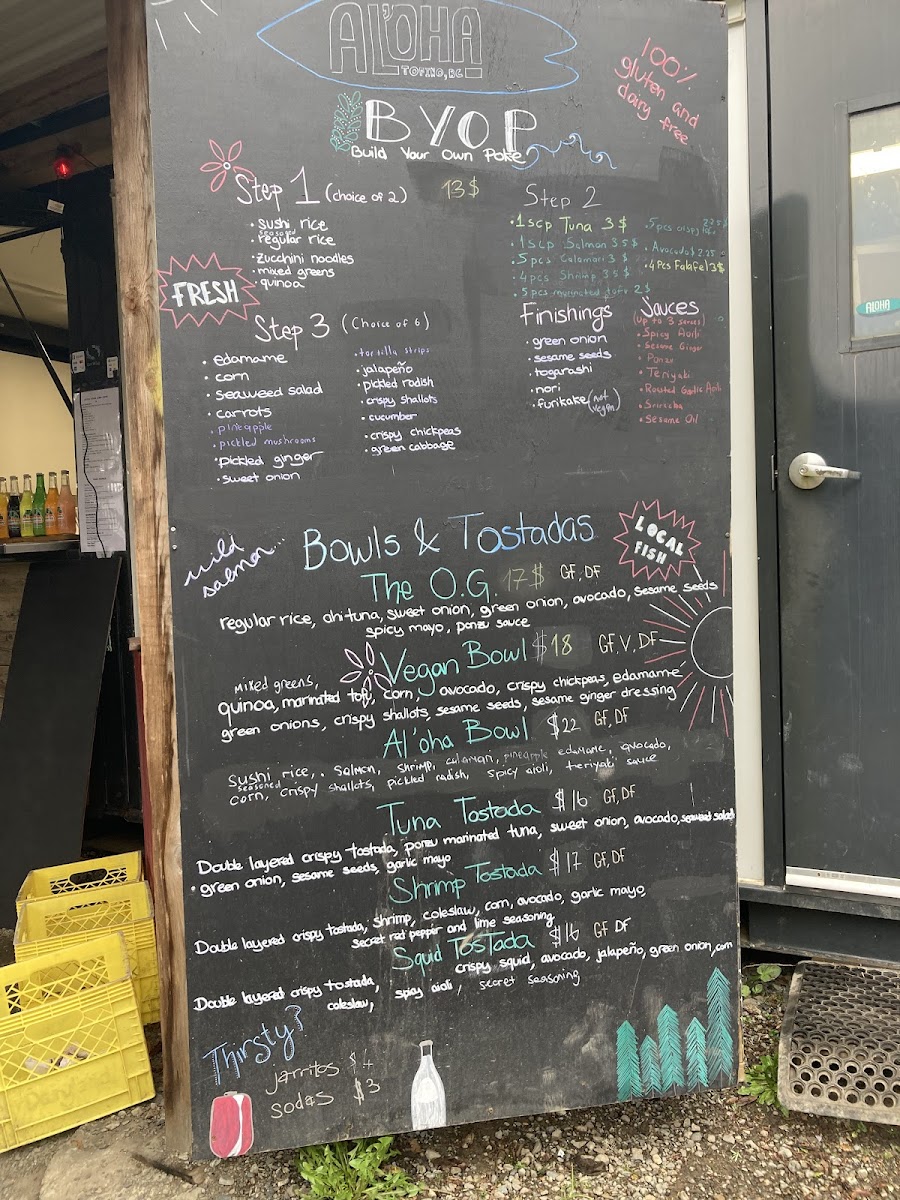 AL'OHA
TOFINO, BC
100%
gluten and
dairy free
BYOP
Build Your Own Poke
Step 1 (choice of 2) 13$
• sushi rice
seasoned
• regular rice
• zucchini noodles
• mixed greens
• quinoa
FRESH
Step 2
• 1 scp Tuna 3$
• 1 scp Salmon 3.5$
• 5 pcs Calamari 3$
• 4 pcs Shrimp 3.5$
• 5 pcs marinated tofu 2$
• 5 pcs crispy
• Avocado $2.25
• 4 Pcs Falafel 3$
Step 3 (Choice of 6)
• edamame
• corn
• seaweed salad
• carrots
• pineapple
• pickled mushrooms
• pickled ginger
• sweet onion
• tortilla strips
• jalapeño
• pickled radish
• crispy shallots
• cucumber
• crispy chickpeas
• green cabbage
Finishings
• green onion
• sesame seeds
• togarashi
• nori
• furikake (not vegan)
Sauces
(up to 3 sauces)
• Spicy Aioli
• Sesame Ginger
• Ponzu
• Teriyaki
• Roasted Garlic Aioli
• Sriracha
• Sesame Oil
ALOHA
wild
salmon...
Bowls & Tostadas
LOCAL
FISH
The O.G. 17$ GF, DF
regular rice, ahi tuna, sweet onion, green onion, avocado, sesame seeds
spicy mayo, ponzu sauce
Vegan Bowl $18 GF, V, DF
mixed greens,
quinoa, marinated tofu, corn, avocado, crispy chickpeas, edamame
green onions, crispy shallots, sesame seeds, sesame ginger dressing
Al'oha Bowl $22 GF, DF
sushi rice, salmon, shrimp, calamari, pineapple edamame, avocado,
seasoned
corn, crispy shallots, pickled radish, spicy aioli, teriyaki sauce
Tuna Tostada $16 GF, DF
Double layered crispy tostada, ponzu marinated tuna, sweet onion, avocado, seaweed salad
• green onion, sesame seeds, garlic mayo
Shrimp Tostada $17 GF, DF
Double layered crispy tostada, shrimp, coleslaw, corn, avocado, garlic mayo,
secret red pepper and lime seasoning
Squid Tostada $16 GF DF
Double layered crispy tostada, crispy squid, avocado, jalapeño, green onion, corn
coleslaw, spicy aioli, secret seasoning
Thirsty?
jarritos $4
sodas $3